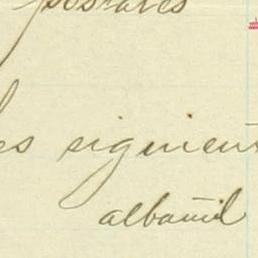 postales
es siguient
albañil